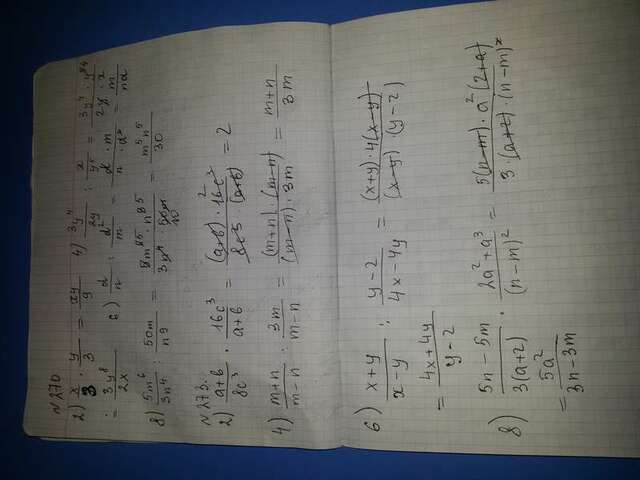 N270
2) x/3 · y/3 = xy/9 4) 3y⁴/2y : x/y⁴ = 3y⁴ · y⁴/2y · x
= 3y⁸/2x 6) d/n : d²/m = d · m/n · d² = m/nd
8) 5m⁶/3n⁴ : 50m/n⁹ = 5m⁶ · n⁹/3n⁴ · 50m = m⁵n⁵/30
N273.
2) a+b/8c³ · 16c³/a+b = (a+b) · 16c³/8c³ · (a+b) = 2
4) m+n/m-n : 3m/m-n = (m+n)(m-n)/(m-n) · 3m = m+n/3m
6) x+y/x-y : y-2/4x-4y = (x+y) · 4(x-y)/(x-y) · (y-2)
= 4x+4y/y-2
8) 5n-5m/3(a+2) · 2a²+a³/(n-m)² = 5(n-m) · a²(2+a)/3 · (a+2) · (n-m)²
= 5a²/3n-3m